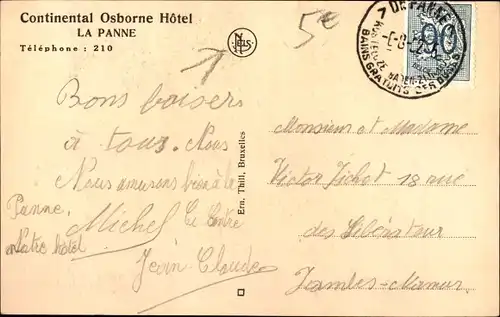 Continental Osborne Hôtel
LA PANNE
Téléphone : 210
5€
NELS
DE PANNE
90
BAINS GRATUITS
Bons baisers
à tous. Nous
Nous amusons bien à la
Panne.
Michel
notre hôtel
Jean-Claude
Ern. Thill, Bruxelles
Monsieur et Madame
Victor Fichot 18 rue
des
Jambes-Namur